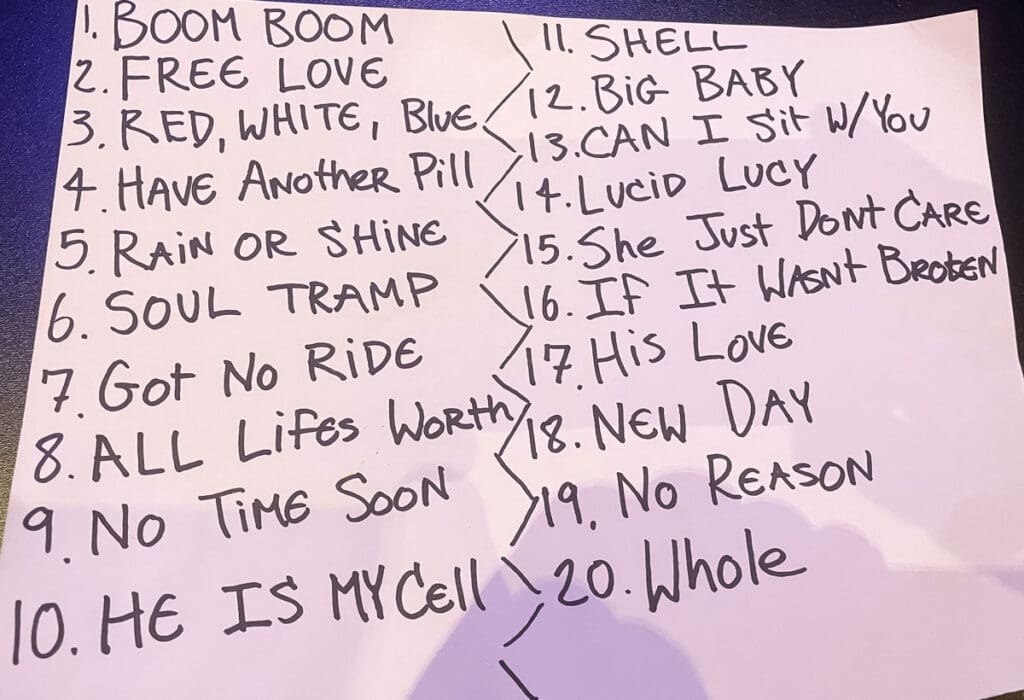 1. BOOM BOOM
2. FREE LOVE
3. RED, WHITE, Blue
4. HAVE ANotheR Pill
5. RAiN OR SHiNE
6. SOUL TRAMP
7. Got No RiDE
8. ALL LifEs WoRth
9. NO TiME SooN
10. HE IS MY CEll
11. SHELL
12. BiG BABY
13. CAN I Sit W/You
14. LuciD LUCY
15. She Just DoNt CARE
16. If It WASNt BROKEN
17. His LovE
18. NEW DAY
19. No REASON
20. Whole